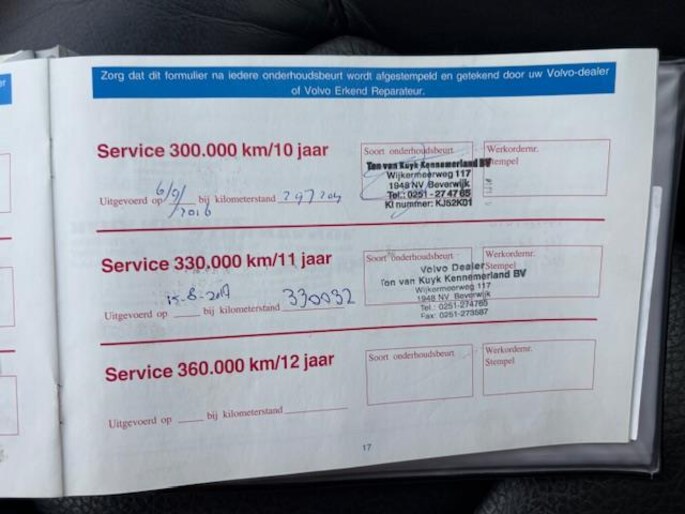 Zorg dat dit formulier na iedere onderhoudsbeurt wordt afgestempeld en getekend door uw Volvo-dealer
of Volvo Erkend Reparateur.
Service 300.000 km/10 jaar
Soort onderhoudsbeurt
Werkordernr.
Stempel
Ton van Kuyk Kennemerland BV
Wijkermeerweg 117
1948 NV Beverwijk
Tel.: 0251-274765
KI nummer: KJ52K01
Uitgevoerd op 6/9/2016 bij kilometerstand
Service 330.000 km/11 jaar
Soort onderhoudsbeurt
Werkordernr.
Stempel
Volvo Dealer
Ton van Kuyk Kennemerland BV
Wijkermeerweg 117
1948 NV Beverwijk
Tel.: 0251-274765
Fax: 0251-273587
Uitgevoerd op 15-8-2017 bij kilometerstand 330032
Service 360.000 km/12 jaar
Soort onderhoudsbeurt
Werkordernr.
Stempel
Uitgevoerd op bij kilometerstand
17